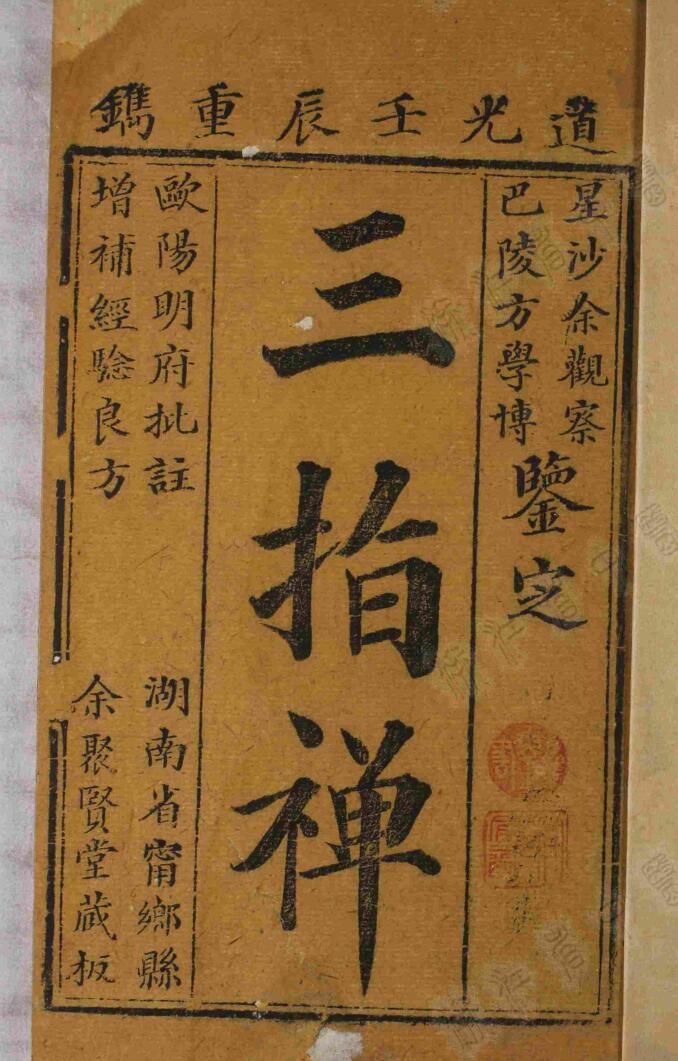 道光壬辰重鐫
星沙余觀察
巴陵方學博
鑒定
三指禅
歐陽明府批註
增補經驗良方
湖南省甯鄉縣
余聚賢堂蔵板